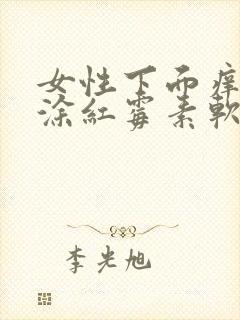 女性下面痒
涂红霉素软
李光旭